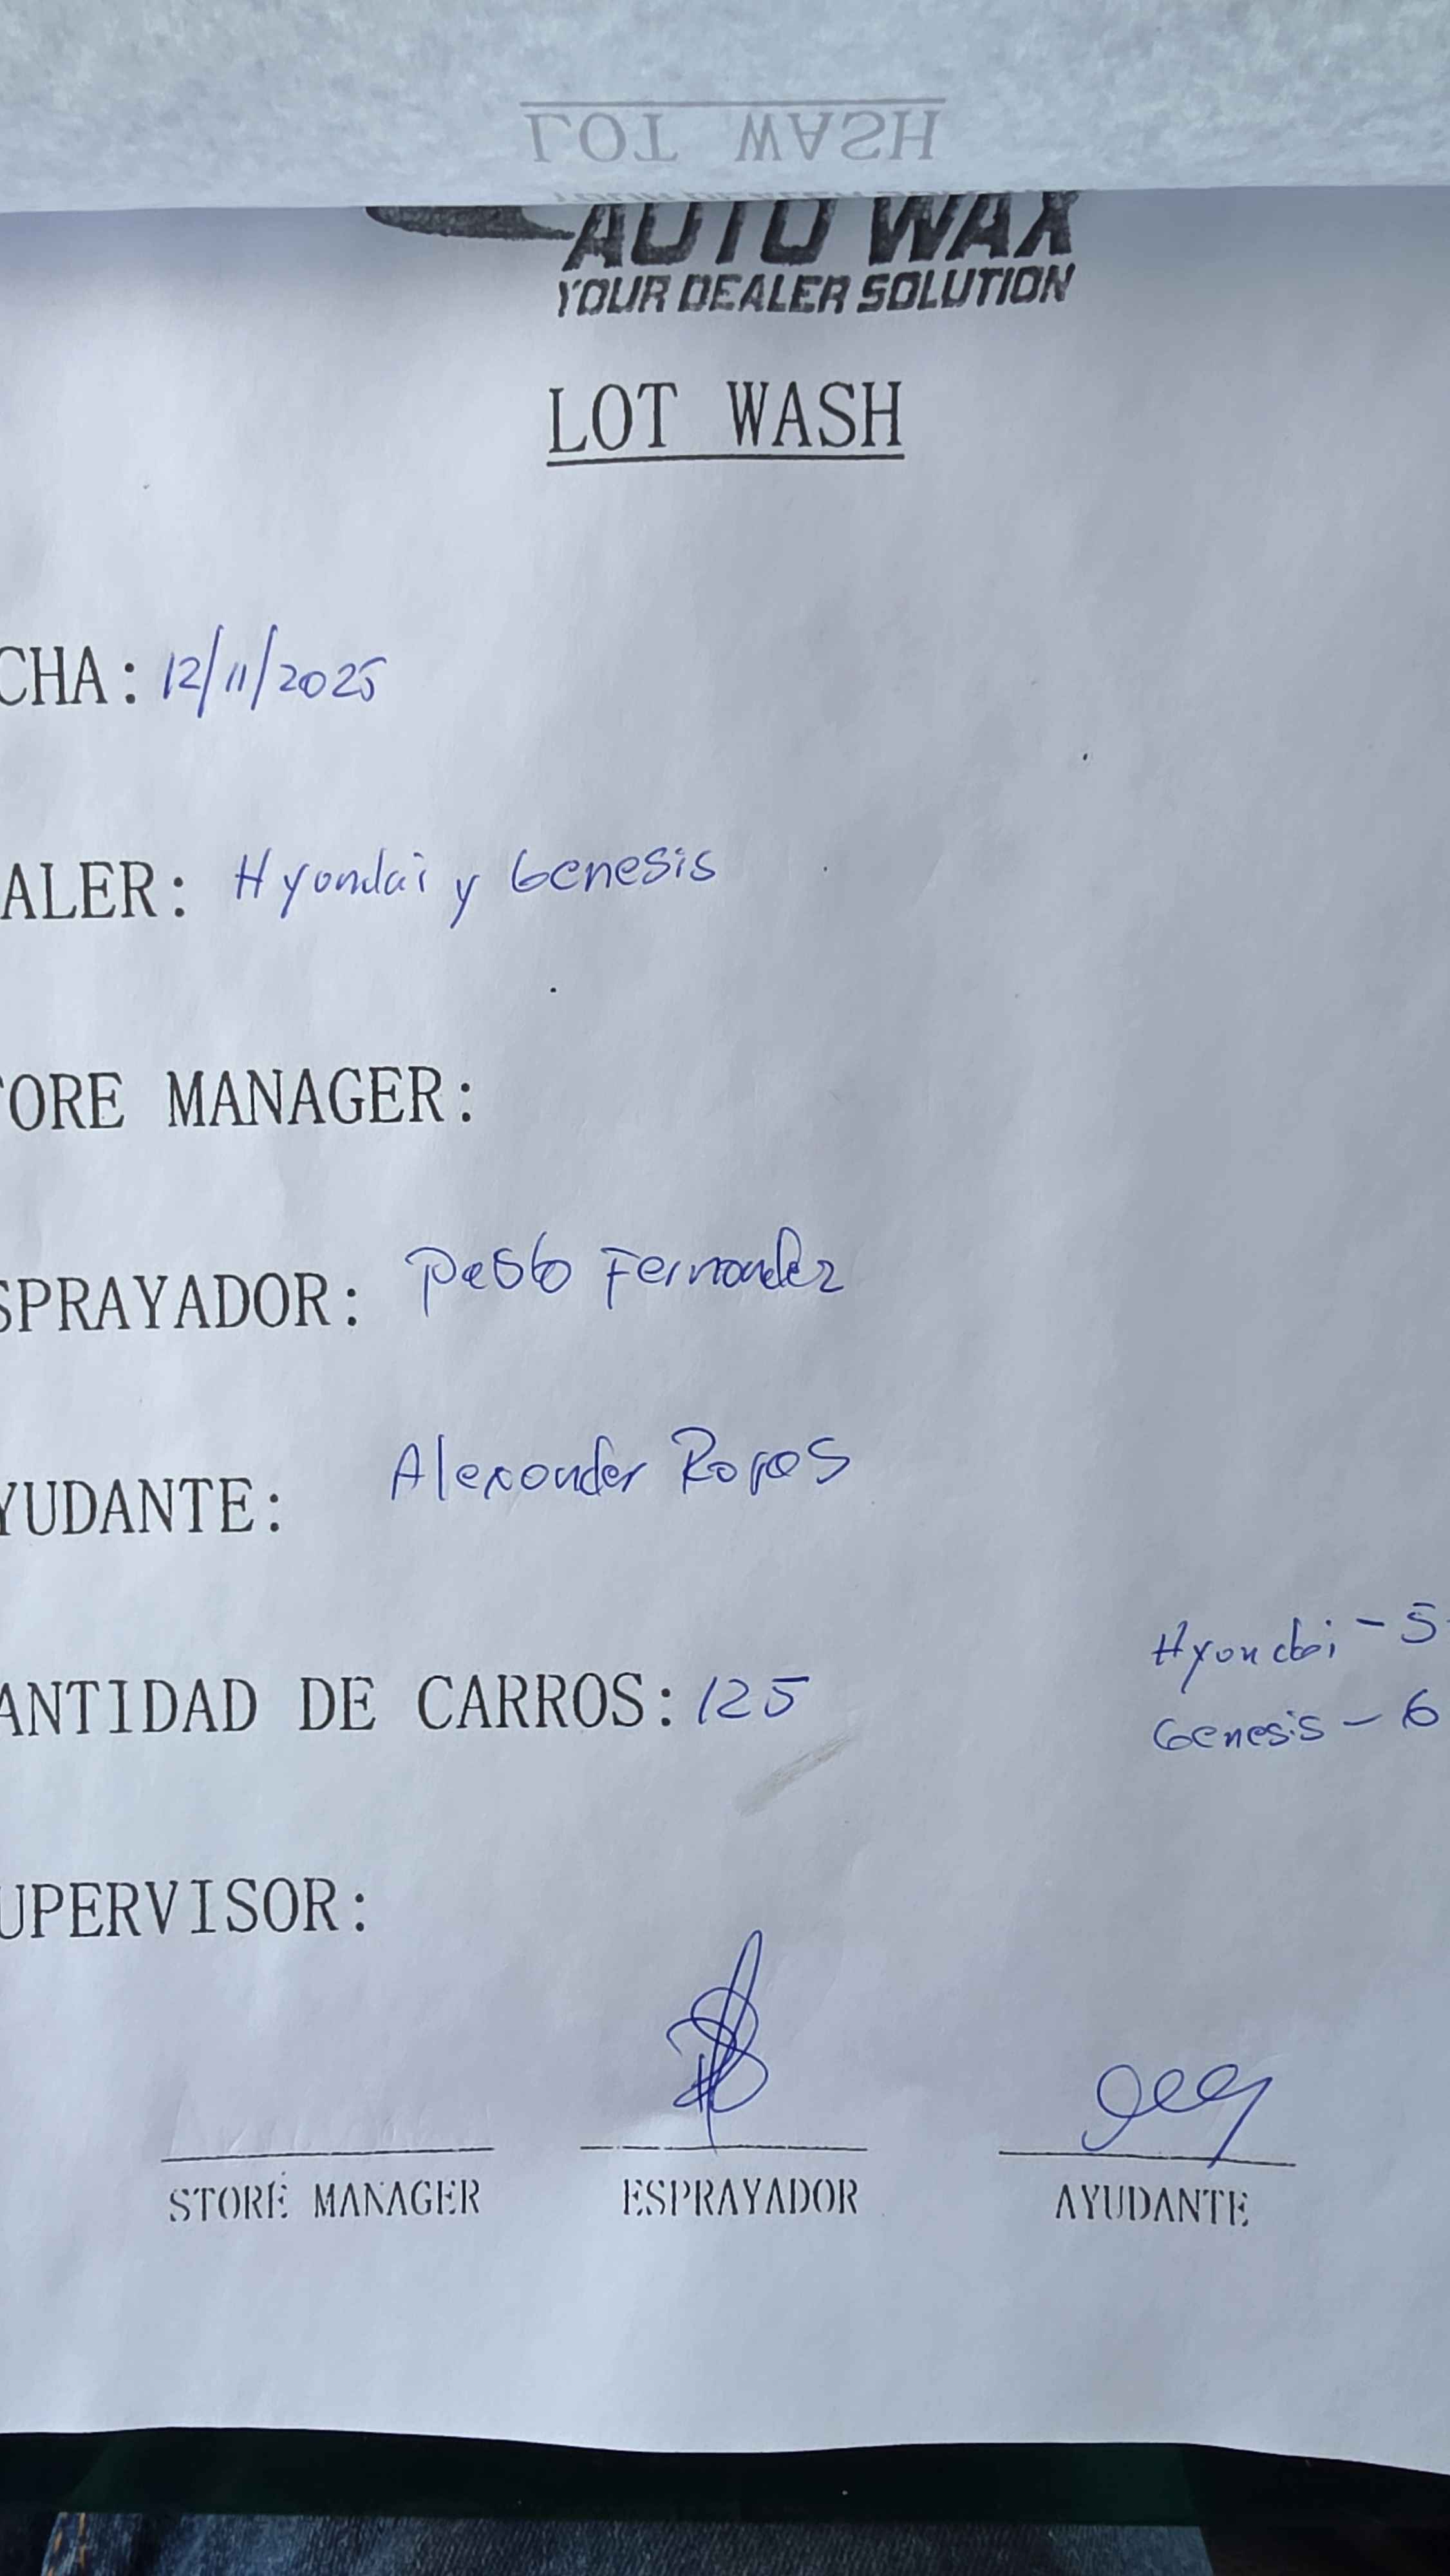 LOT WASH
AUTO WAX
YOUR DEALER SOLUTION
LOT WASH
CHA: 12/11/2025
ALER: Hyondai y Genesis
ORE MANAGER:
SPRAYADOR: Pablo Fernandez
YUDANTE: Alexander Rojas
Hyondai - 5
ANTIDAD DE CARROS: 125
Genesis - 6
UPERVISOR:
STORE MANAGER ESPRAYADOR AYUDANTE